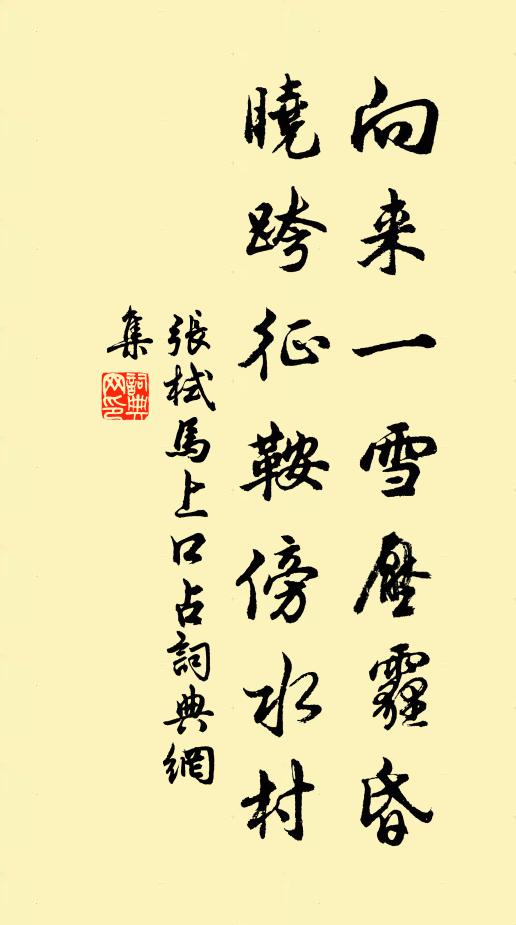 向来一雪壓霾昏
曉跨征鞍傍水村
張栻馬上口占詞典網
集
詞典网印